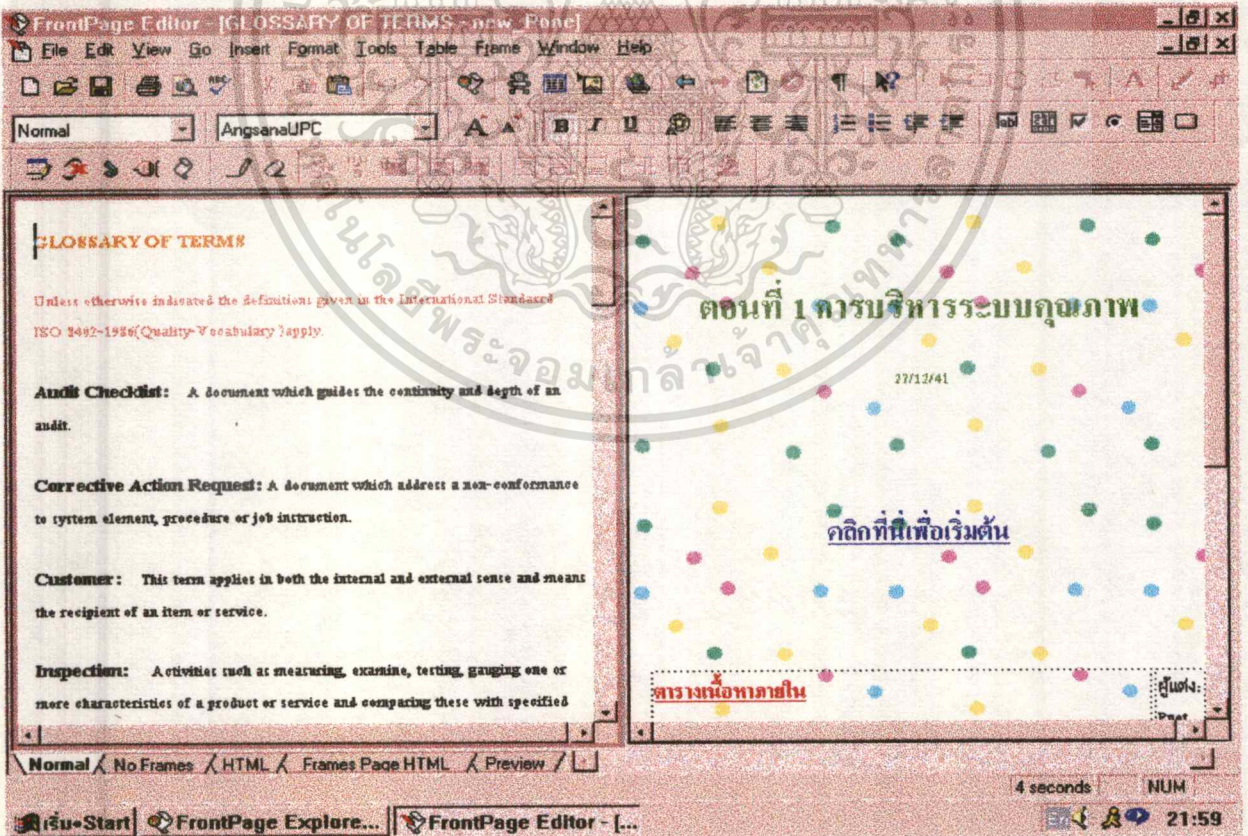 FrontPage Editor - [GLOSSARY OF TERMS - new_Pone]
File Edit View Go Insert Format Tools Table Frame Window Help
Normal AngsanaUPC
GLOSSARY OF TERMS
Unless otherwise indicated the definitions given in the International Standard
ISO 8402-1986(Quality-Vocabulary )apply.
Audit Checklist: A document which guides the continuity and depth of an
audit.
Corrective Action Request: A document which address a non-conformance
to system element, procedure or job instruction.
Customer : This term applies in both the internal and external sense and means
the recipient of an item or service.
Inspection: Activities such as measuring, examine, testing, gauging one or
more characteristics of a product or service and comparing these with specified
ตอนที่ 1 การบริหารระบบคุณภาพ
27/12/41
คลิกที่นี่เพื่อเริ่มต้น
ตารางเนื้อหาภายใน
ผู้แต่ง:
Normal No Frames HTML Frames Page HTML Preview
4 seconds NUM
เริ่ม•Start FrontPage Explore... FrontPage Editor - [...
En 21:59